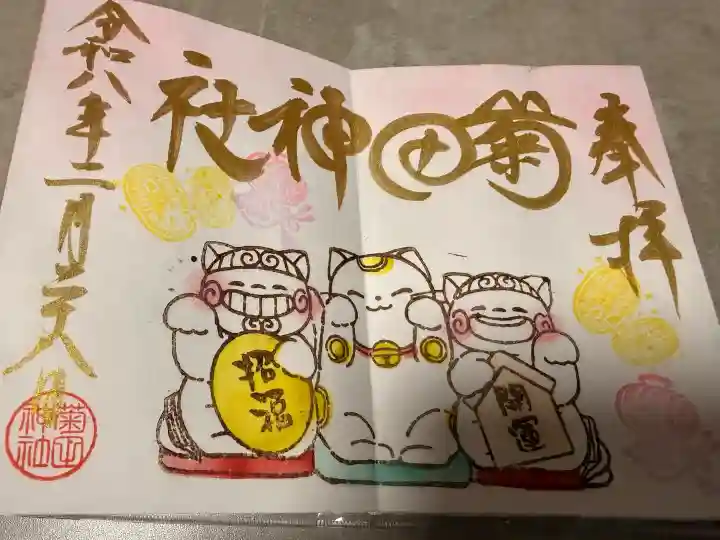 奉拝
菊田神社
招福
開運
令和八年二月
菊田
神社